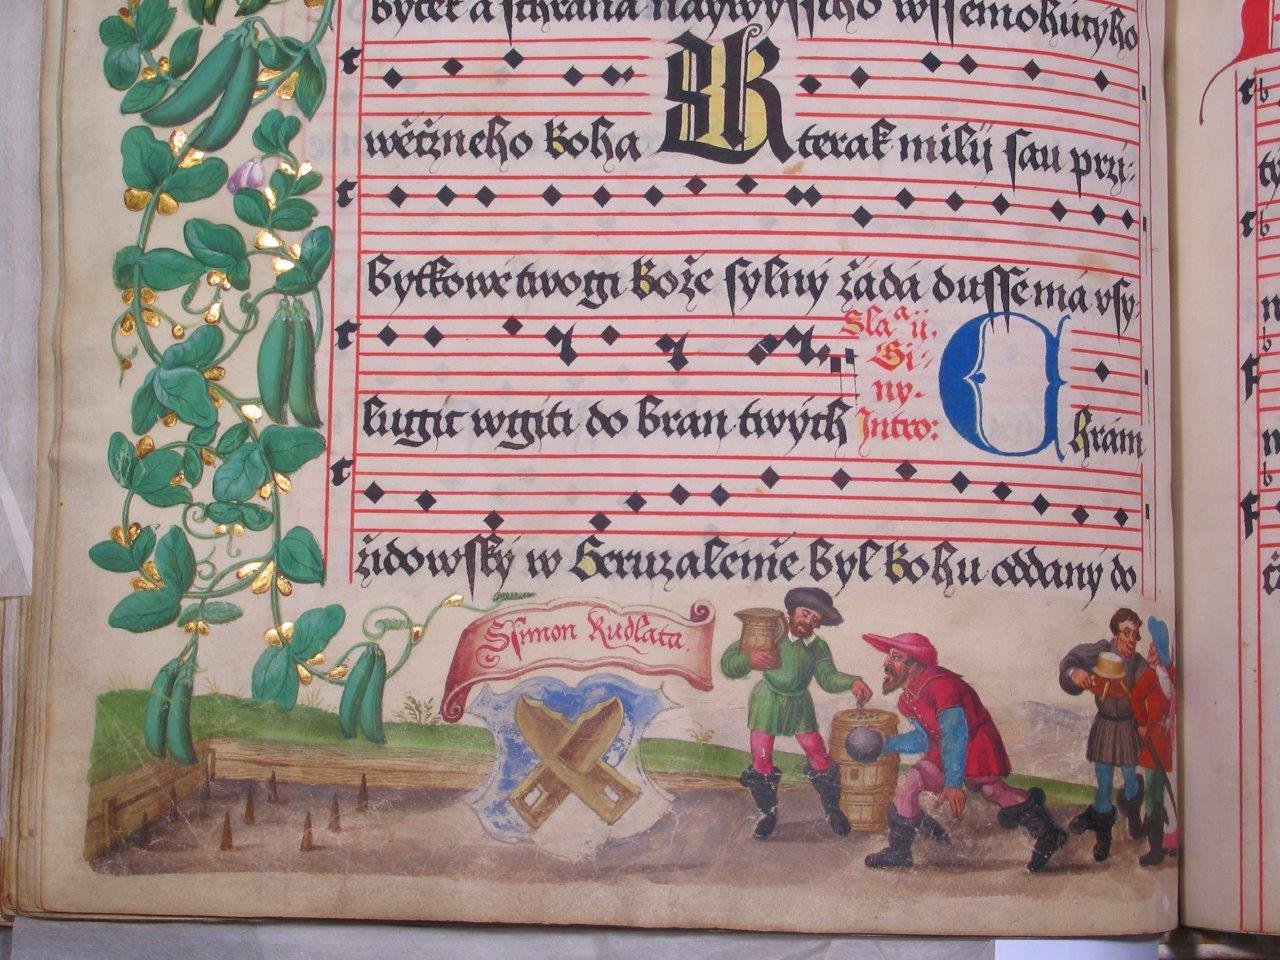 bytek a schrana naywyssiho wssemohucyho
wěčzneho Boha Kterak milij sau przi:
bytkowe twogi Bože sylny žada dusse ma vsy,
lugic wgiti do bran twych Sla a ij. Giny. Intro: Chram
židowsky w Geruzaleme byl Bohu oddany do
Ssimon Kudlata.